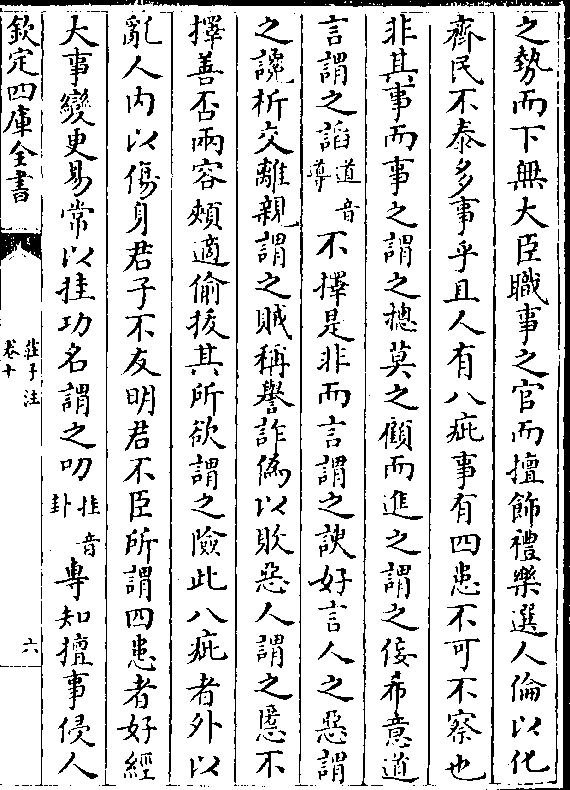 之勢而下無大臣職事之官而擅飾禮樂選人倫以化
齊民不泰多事乎且人有八疵事有四患不可不察也
非其事而事之謂之摠莫之顧而進之謂之佞希意道
言謂之謟道音導不擇是非而言謂之諛好言人之惡謂
之讒析交離親謂之賊稱譽詐偽以敗惡人謂之慝不
擇善否兩容頰適偷拔其所欲謂之險此八疵者外以
亂人内以傷身君子不友明君不臣所謂四患者好經
大事變更易常以挂功名謂之叨挂音卦專知擅事侵人
欽定四庫全書
莊子注
卷十
六